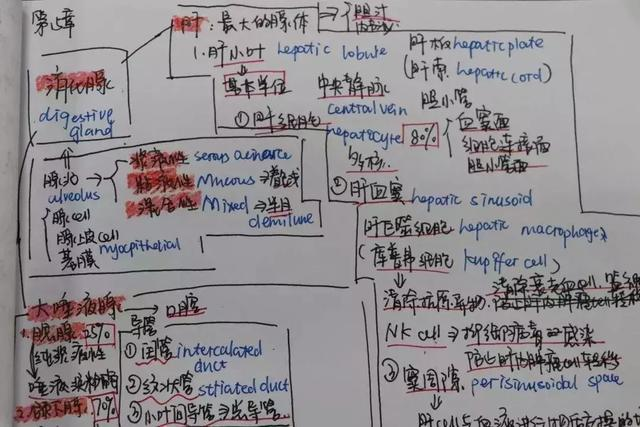 第15章
消化腺
digestive
gland
肝:最大的腺体
胆汁
1.肝小叶 hepatic lobule
基本单位
中央静脉
central vein
①肝细胞
hepatocyte 80%
肝板 hepatic plate
(肝索 hepatic cord)
胆小管
血窦面
细胞连接面
胆小管面
腺泡
alveolus
浆液性 serous acinar
粘液性 Mucous
混合性 Mixed → 半月
demilune
腺cell
腺上皮cell
myoepithelial
基膜
②肝血窦 hepatic sinusoid
肝巨噬细胞 hepatic macrophage
(库普弗细胞 kupffer cell)
NK cell
③窦周隙
perisinusoidal space
大唾液腺 → 口腔
1.腮腺 25%
纯浆液性
唾液淀粉酶
2.颌下腺 70%
导管
①闰管 intercalated
duct
②纹状管 striated duct
③小叶间导管→总导管